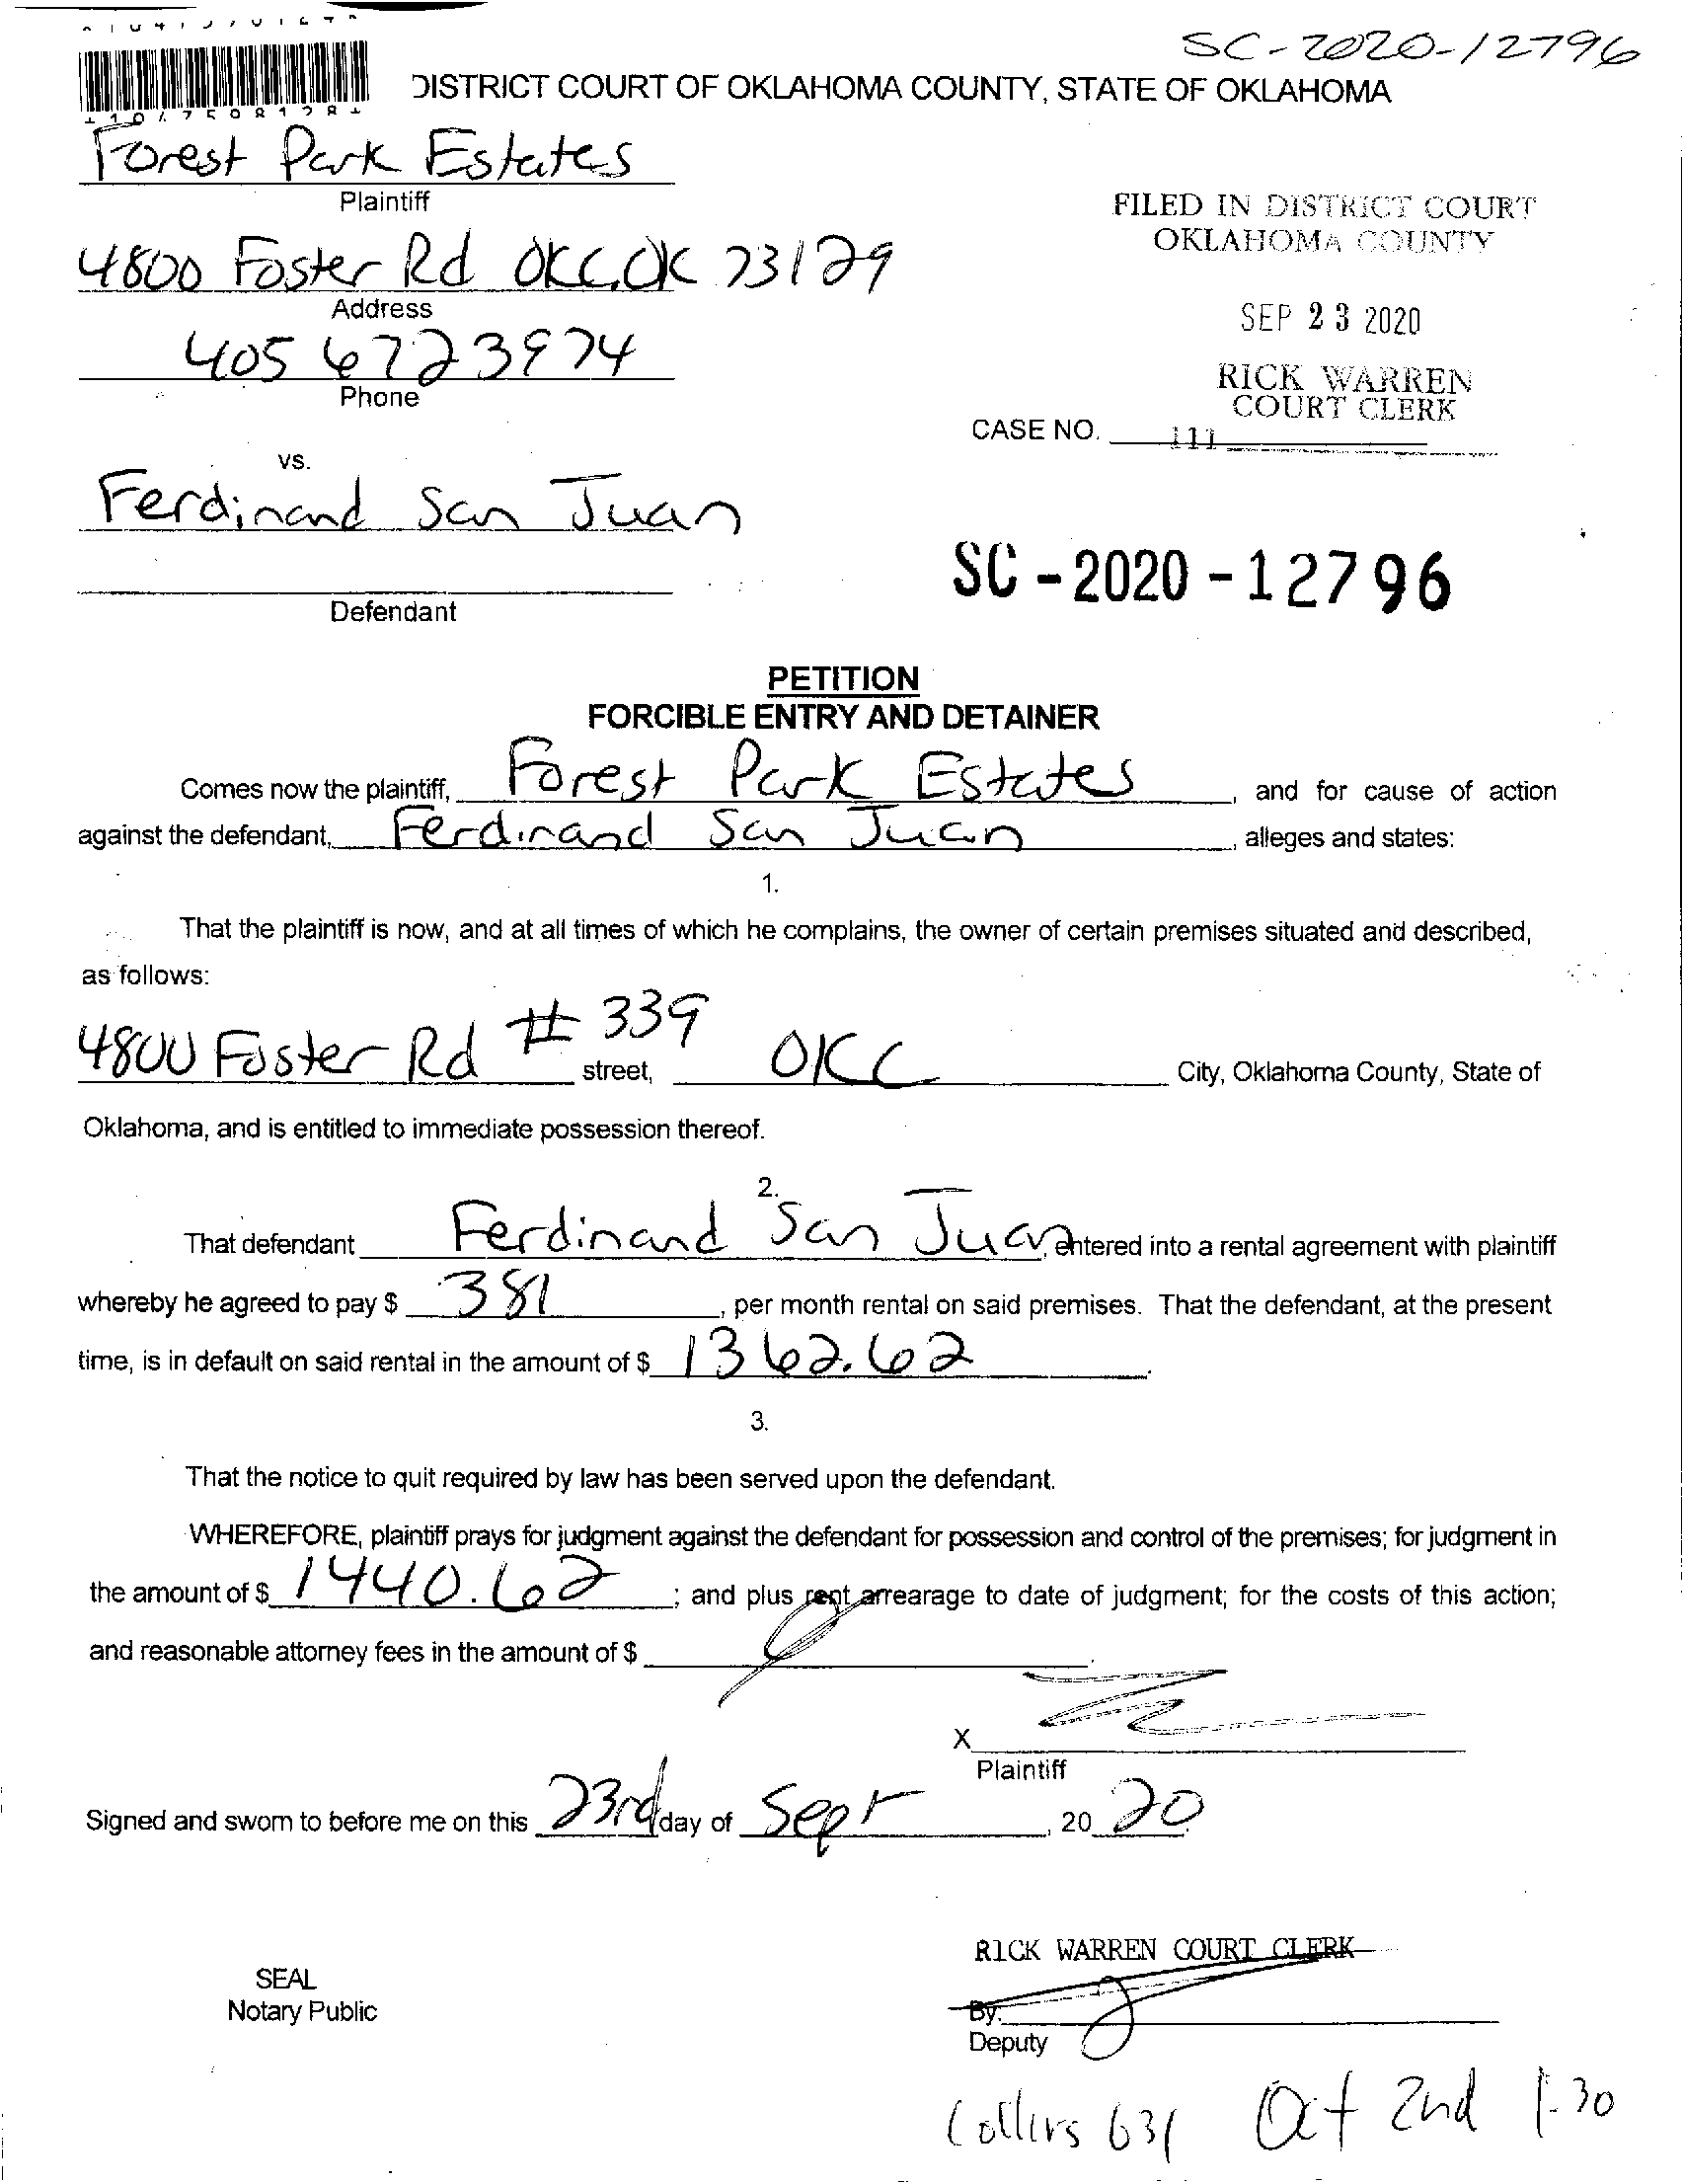 SC-2020-12796
DISTRICT COURT OF OKLAHOMA COUNTY, STATE OF OKLAHOMA
Forest Park Estates
Plaintiff
FILED IN DISTRICT COURT
OKLAHOMA COUNTY
4800 Foster Rd OKC, OK 73129
Address
SEP 23 2020
405 672 3974
Phone
RICK WARREN
COURT CLERK
CASE NO.
111
vs.
Ferdinand San Juan
SC - 2020 - 12796
Defendant
PETITION
FORCIBLE ENTRY AND DETAINER
Comes now the plaintiff, Forest Park Estates, and for cause of action
against the defendant, Ferdinand San Juan, alleges and states:
1.
That the plaintiff is now, and at all times of which he complains, the owner of certain premises situated and described,
as follows:
4800 Foster Rd # 339 street, OKC City, Oklahoma County, State of
Oklahoma, and is entitled to immediate possession thereof.
2.
That defendant Ferdinand San Juan, entered into a rental agreement with plaintiff
whereby he agreed to pay $ 381, per month rental on said premises. That the defendant, at the present
time, is in default on said rental in the amount of $ 1362.62.
3.
That the notice to quit required by law has been served upon the defendant.
WHEREFORE, plaintiff prays for judgment against the defendant for possession and control of the premises; for judgment in
the amount of $ 1440.62; and plus rent arrearage to date of judgment; for the costs of this action;
and reasonable attorney fees in the amount of $
X
Plaintiff
Signed and sworn to before me on this 23rd day of Sept, 20 20.
RICK WARREN COURT CLERK
SEAL
Notary Public
By:
Deputy
Collins 631 Oct 2nd 1:30